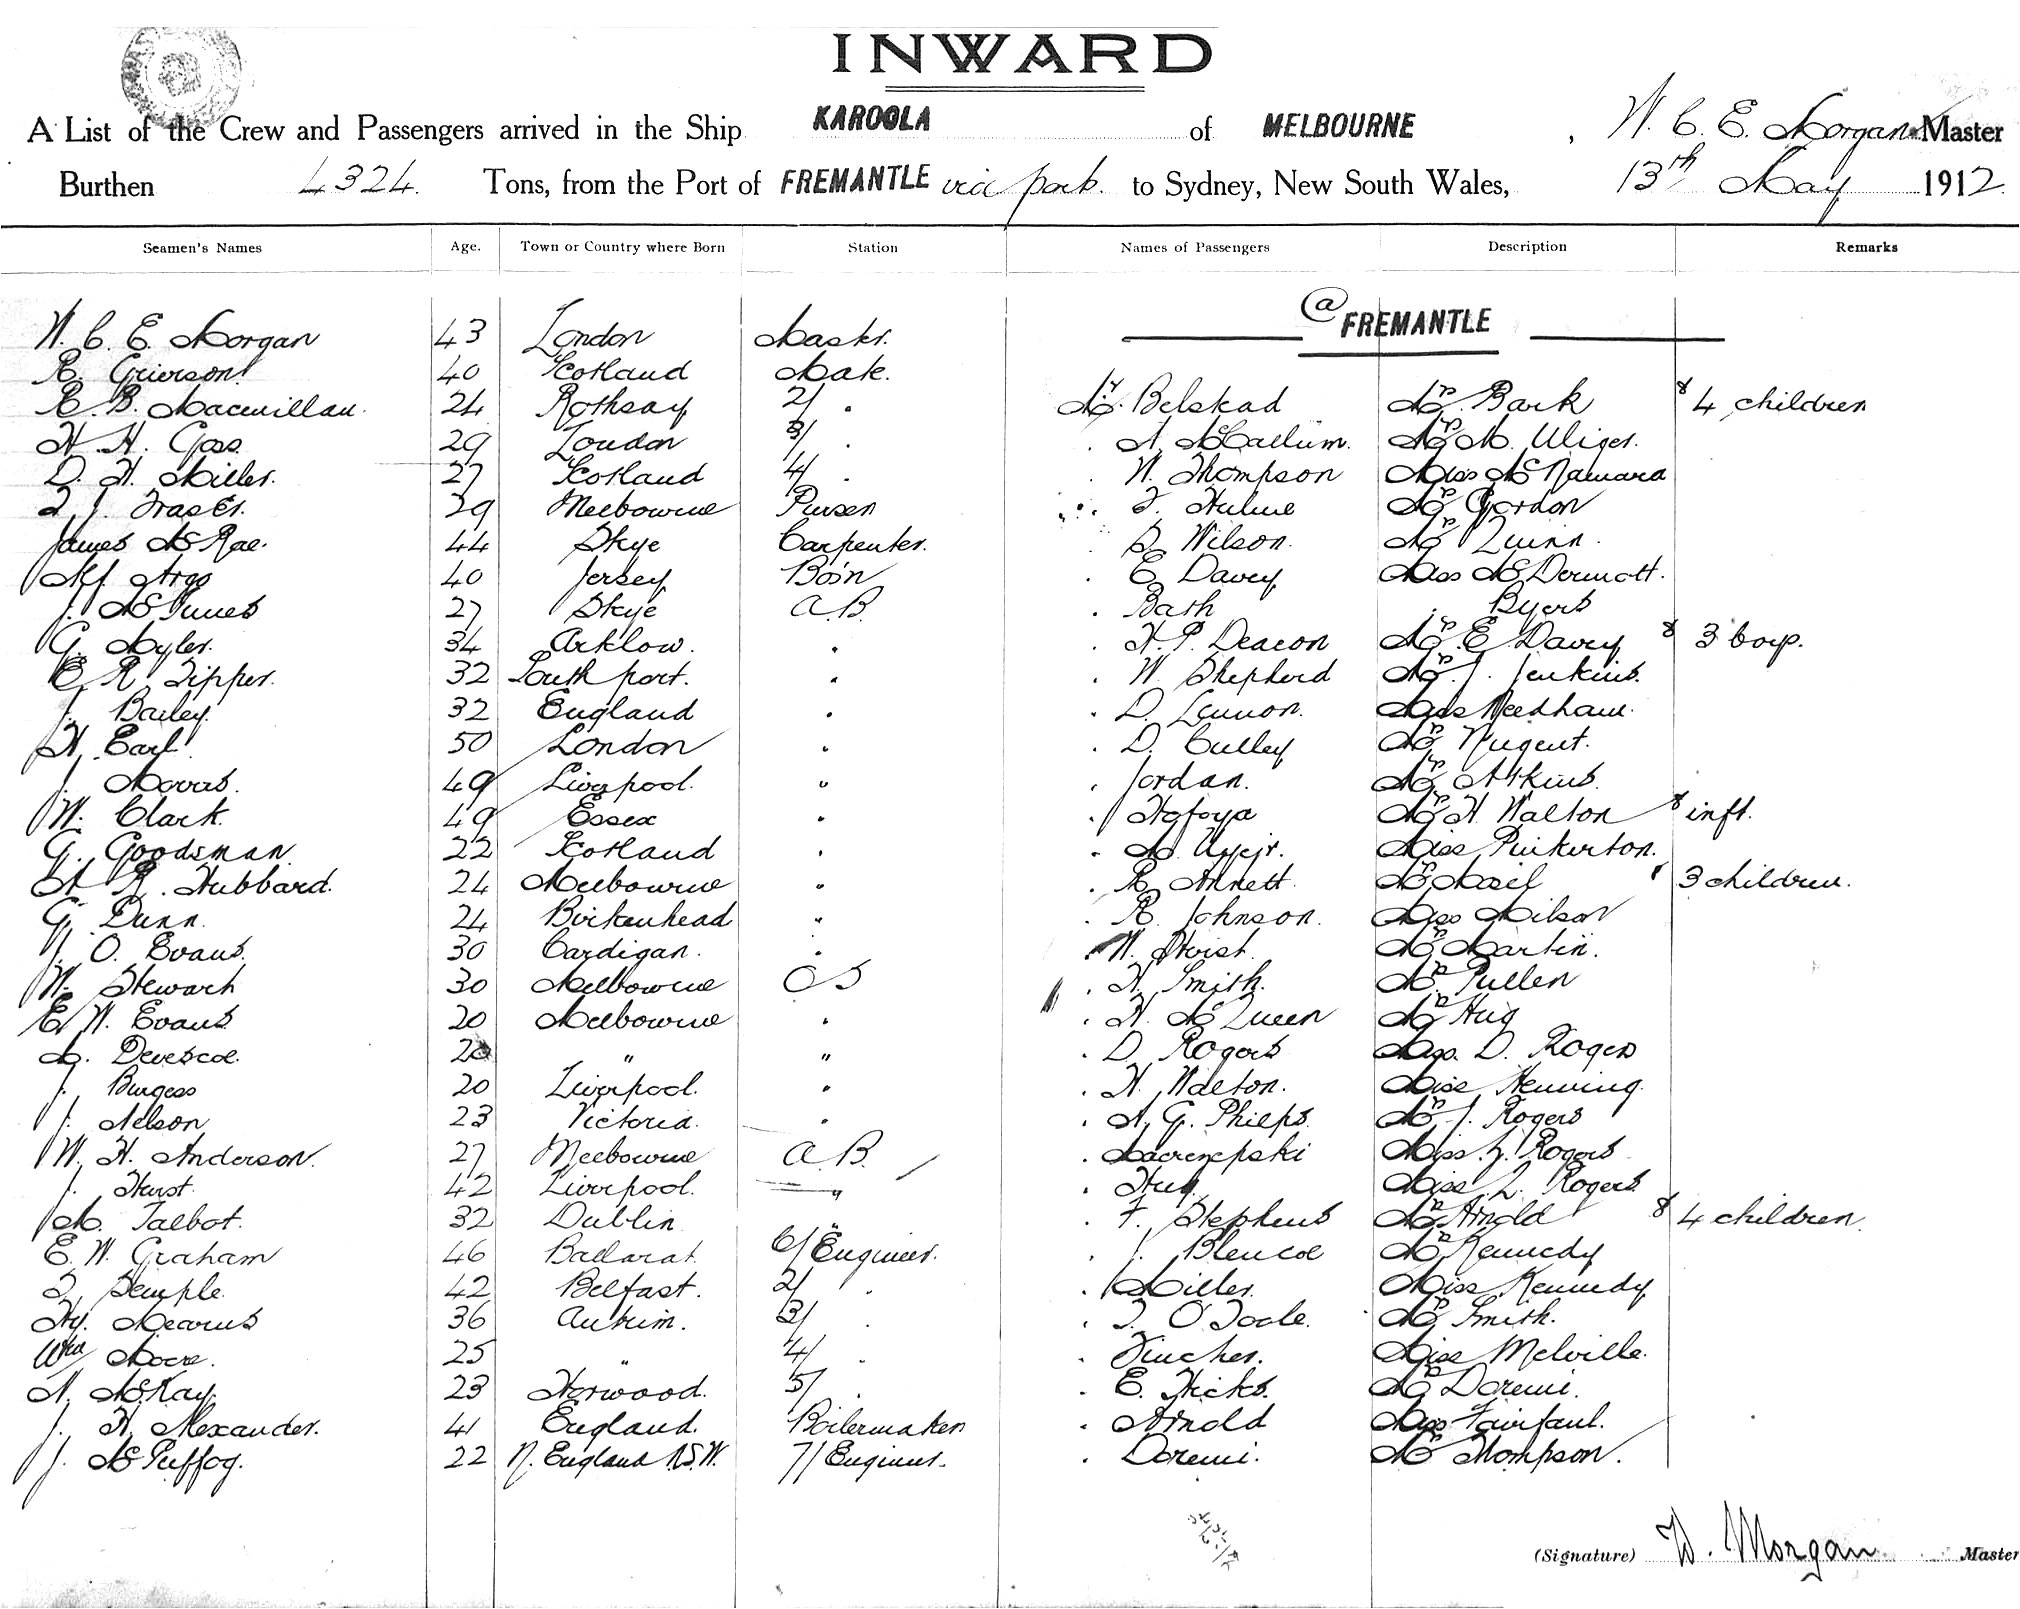 INWARD
A List of the Crew and Passengers arrived in the Ship KAROOLA of MELBOURNE, W. C. E. Morgan Master
Burthen 4324. Tons, from the Port of FREMANTLE via port. to Sydney, New South Wales, 13th May 1912.
Seamen's Names Age. Town or Country where Born Station Names of Passengers Description Remarks
@ FREMANTLE
W. C. E. Morgan 43 London Master.
R. Grierson 40 Scotland Mate.
R. B. Macmillan. 24 Rothsay 2/ . Mr. Belstead Mrs. Bark & 4 children
H. H. Goss. 29 London 3/ . . A. McCallum. Mrs M.
D. H. Miller. 27 Scotland 4/ . . W. Thompson Miss McNamara
T. J. Fraser. 29 Melbourne Purser . F. Hulme Mrs Gordon
James McRae. 44 Skye Carpenter. . D. Wilson. Mrs Quinn.
Alf Argo 40 Jersey Bo'sn . E. Davey Miss McDermott.
J. McInnes 27 Skye A.B. . Bath . Byers
G. Myler. 34 Arklow. . . H. P. Deacon Mrs. E Davey & 3 boys.
E. R. Tipper. 32 South port. . . W. Shepherd Mrs. J. Jenkins.
J. Bailey. 32 England . . D. Lennon. Miss Needham.
H. Earl 50 London . . D. Culley Mrs Nugent.
J. Morris. 49 Liverpool. " . Jordan. Mrs Atkins.
W. Clark. 49 Essex . . Mrs H. Walton & inft.
G. Goodsman. 22 Scotland . . M. Miss Pinkerton.
A. R. Hubbard. 24 Melbourne " . R. Annett. Mrs Mail & 3 children.
G. Dunn. 24 Birkenhead " . R. Johnson. Miss Milson
J. O. Evans. 30 Cardigan. . W. Hoist. Mrs Martin.
W. Stewart 30 Melbourne OS . H. Smith. Mrs. Pullen
E. W. Evans 20 Melbourne . . H. McQueen Mrs Hug
M. Devescoe. 20 " " . D. Rogers Miss. D. Rogers
J. Burgess 20 Liverpool. . . H. Walton. Miss Henning.
J. Nelson 23 Victoria. . . A. G. Phelps. Mrs J. Rogers
W. H. Anderson. 27 Melbourne A.B. . Miss. Rogers
J. Hurst. 42 Liverpool. " . Hug. Miss L. Rogers
M. Talbot. 32 Dublin " . F. Stephens Mrs. Arnold & 4 children.
E. W. Graham 46 Ballarat. C/ Engineer. . J. Blencoe Mrs Kennedy
T. Semple. 42 Belfast. 2/ . . Miller. Miss Kennedy
Hy. Mearns 36 Antrim. 3/ . . T. O'Toole. Mrs Smith.
Wm Moore. 25 " 4/ . . Fincher. Miss Melville.
A. McKay. 23 Norwood. 5/ . . E. Hicks. Mrs Doremi.
J. H. Alexander. 41 England. Boilermaker . Arnold Miss Fairfaul.
J. McGuffog. 22 N. England N.S.W. 7/ Engineer. . Doremi. Mrs Thompson.
(Signature) W. Morgan Master